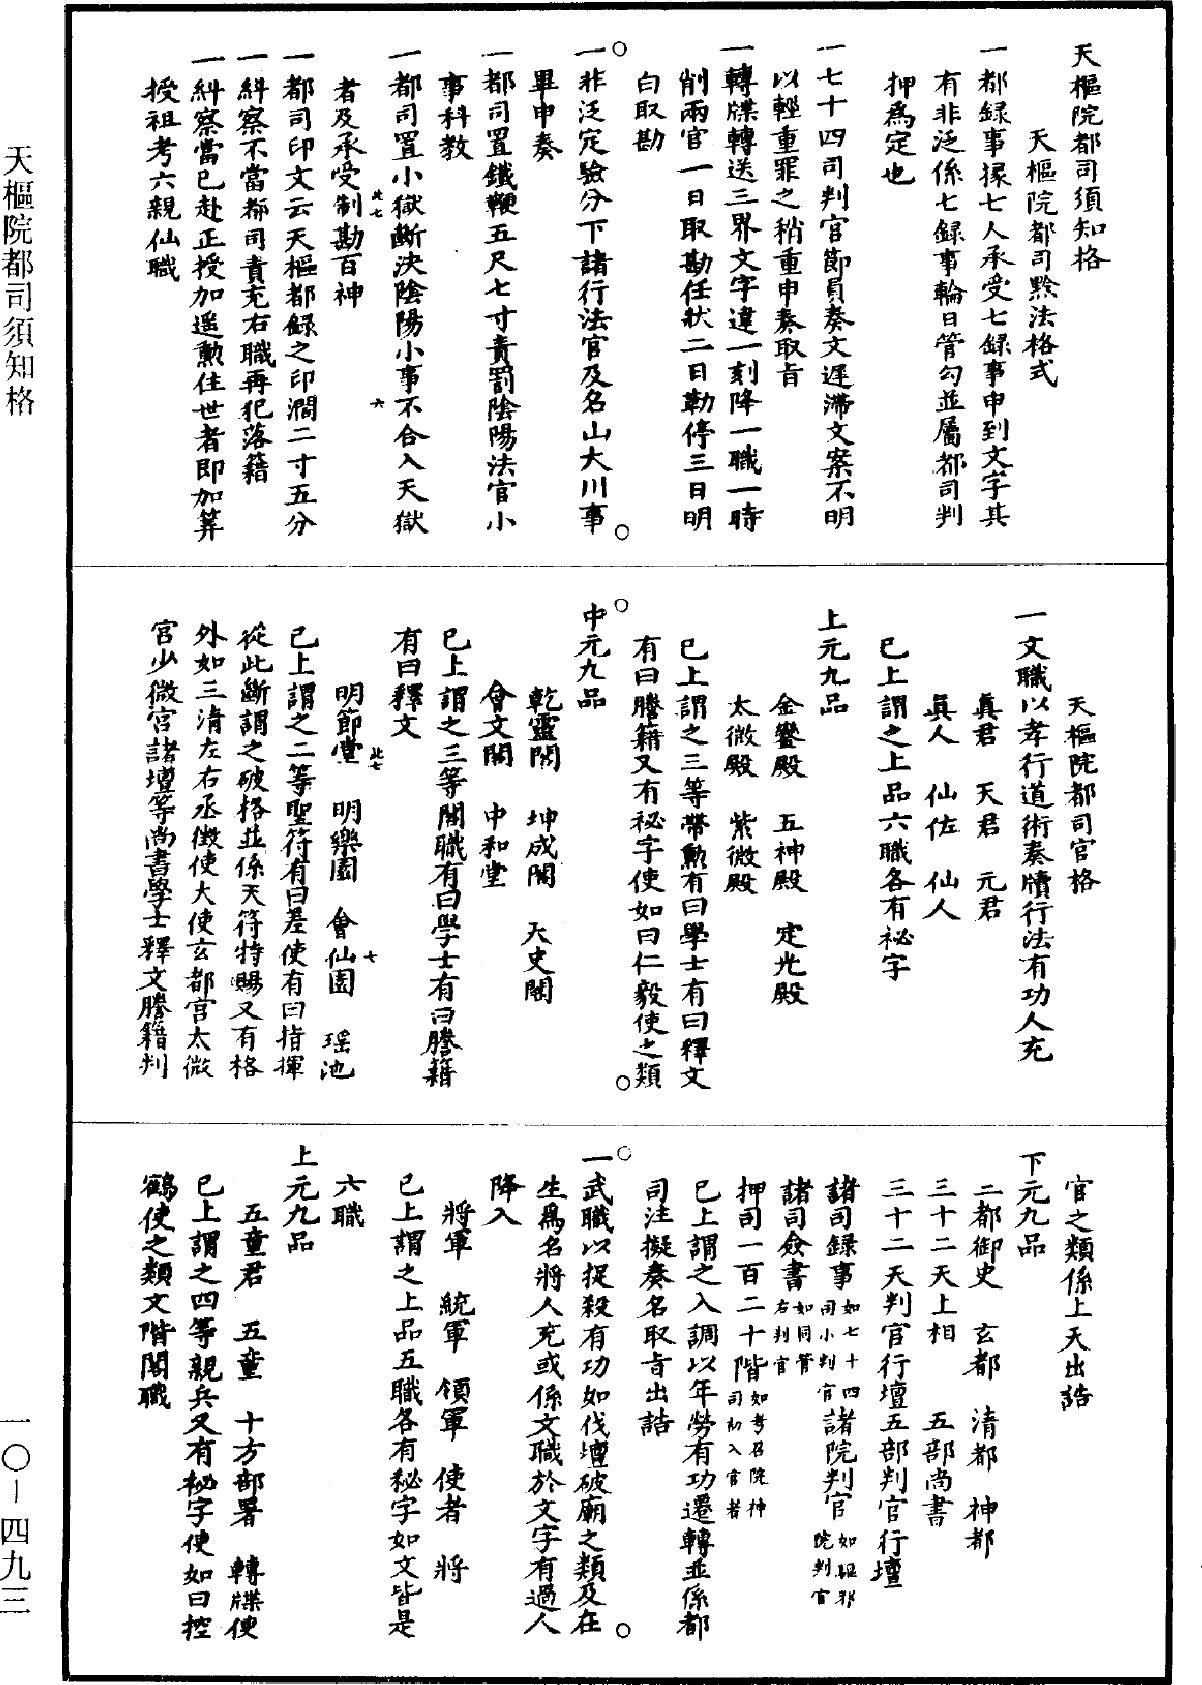 天樞院都司須知格
天樞院都司黙法格式
一都録事掾七人承受七録事申到文字其
有非泛係七録事輪日管勾並屬都司判
押爲定也
一七十四司判官節員奏文遲滯文案不明
以輕重罪之稍重申奏取旨
一轉牒轉送三界文字違一刻降一職一時
削兩官一日取勘任狀二日勒停三日明
白取勘
一非泛定驗分下諸行法官及名山大川事
畢申奏
一都司置鐵鞭五尺七寸責罰陰陽法官小
事科教
一都司置小獄斷決陰陽小事不合入天獄
者及承受制勘百神
一都司印文云天樞都録之印濶二寸五分
一糾察不當都司責充右職再犯落籍
一糾察當已赴正授加遥勲住世者即加筭
授祖考六親仙職
天樞院都司官格
一文職以孝行道術奏牘行法有功人充
真君　天君　元君
真人　仙佐　仙人
已上謂之上品六職各有祕字
上元九品
金鑾殿　五神殿　定光殿
太微殿　紫微殿
已上謂之三等帶勲有曰學士有曰釋文
有曰謄籍又有祕字使如曰仁毅使之類
中元九品
乾靈閣　坤成閣　天史閣
會文閣　中和堂
已上謂之三等閣職有曰學士有曰謄籍
有曰釋文
明節堂　明樂園　會仙園　瑶池
已上謂之二等聖符有曰差使有曰指揮
從此斷謂之破格並係天符特賜又有格
外如三清左右丞徴使大使玄都宫太微
宫少微宫諸壇等尚書學士釋文謄籍判
官之類係上天出誥
下元九品
二都御史　玄都　清都　神都
三十二天上相　五部尚書
三十二天判官行壇五部判官行壇
諸司録事如七十四司小判官諸院判官如驅邪院判官
諸司僉書如同管右判官
押司一百二十階如考召院神司初入官者
已上謂之入調以年勞有功遷轉並係都
司注擬奏名取旨出誥
一武職以捉殺有功如伐壇破廟之類及在
生爲名將人充或係文職於文字有過人
降入
將軍　統軍　領軍　使者　將
已上謂之上品五職各有秘字如文皆是
六職
上元九品
五童君　五童　十方部署　轉牒使
已上謂之四等親兵又有秘字使如曰控
鶴使之類文階閣職
天樞院都司須知格
一〇—四九三